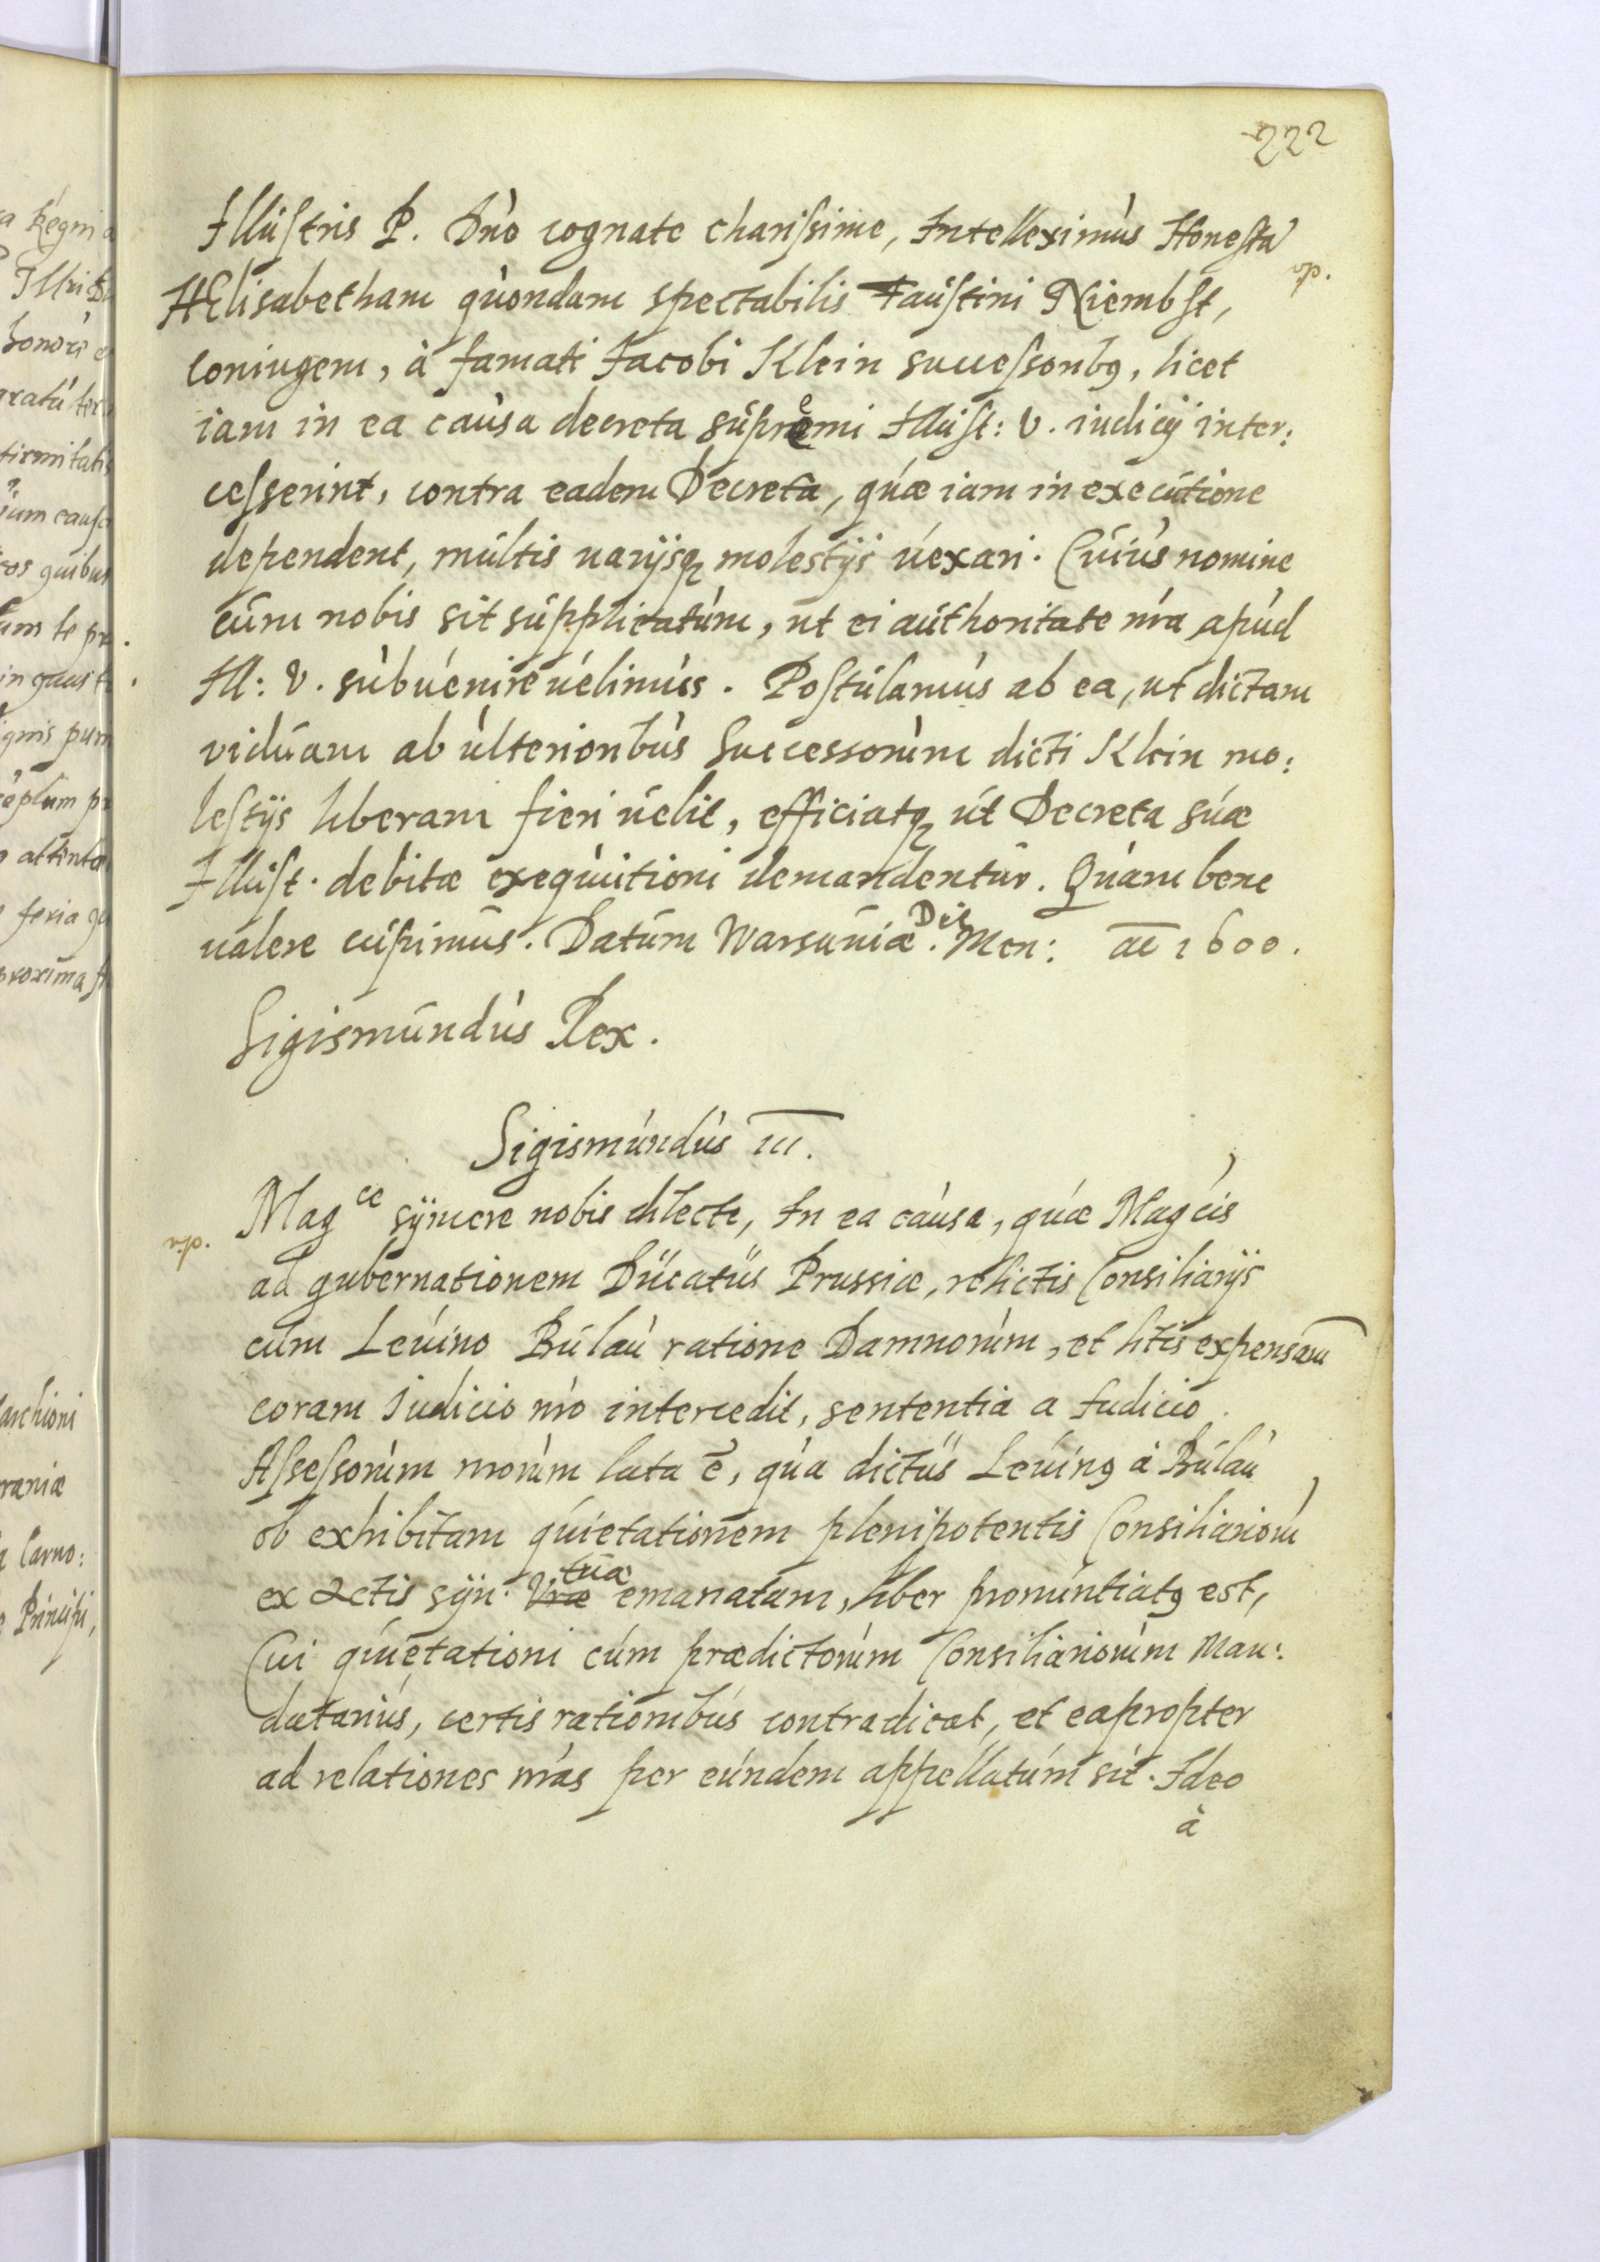 222
Illustris P. Dno cognate charissime, Intelleximus Honesta
HElisabetham quondam spectabilis Faustini Niembst,
vp.
coniugem, à famati Jacobi Klein successorib9, licet
iam in ea causa decreta supremi Illust: V. iudicij inter:
cesserint, contra eadem Decreta, quæ iam in executione
dependent, multis varijsq molestijs vexari. Cuius nomine
cum nobis sit supplicatum, ut ei authoritate nra apud
Ill: V. subuenire uelimus. Postulamus ab ea, ut dictam
viduam ab ulterioribus Successorum dicti Klein mo:
lestijs liberam fieri uelit, efficiatq ut Decreta suæ
Illust. debitæ exequutioni demandentur. Quam bene
ualere cupimus. Datum Warsauiæ. Die Men: aē 1600.
Sigismundus Rex.
Sigismundus III.
Mag ce syncere nobis dilecte, In ea causa, quæ Magcis
vp.
ad gubernationem Ducatus Prussiæ, relictis Consiliarijs
cum Leuino Bulau ratione Damnorum, et litis expensarum
coram Iudicio nro intercedit, sententia a Iudicio
Assessorum nrorum lata ē, qua dictus Leuin9 à Bulau
ob exhibitam quietationem plenipotentis Consiliarioru
ex actis syn. Vræ tuæ emanatam, liber pronuntiat9 est,
Cui quietationi cum prædictorum Consiliariorum Man:
datarius, certis rationibus contradicat, et eapropter
ad relationes nras per eundem appellatum sit. Ideo
à